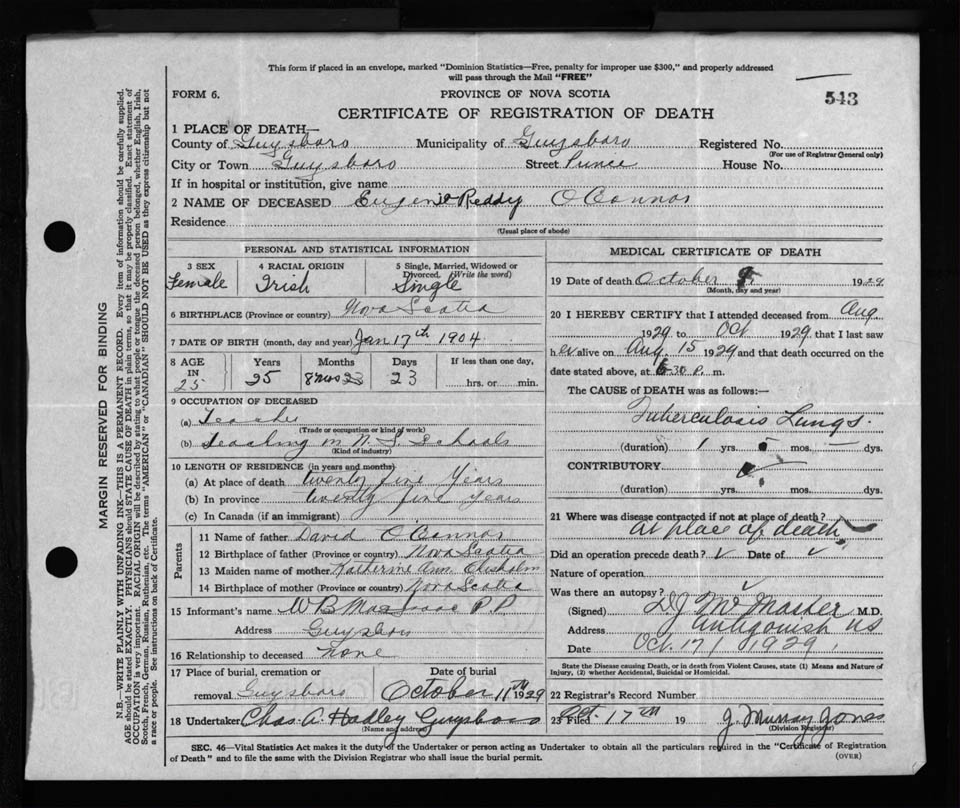 This form if placed in an envelope, marked "Dominion Statistics—Free, penalty for improper use $300," and properly addressed
will pass through the Mail "FREE"
FORM 6.
PROVINCE OF NOVA SCOTIA
543
CERTIFICATE OF REGISTRATION OF DEATH
1 PLACE OF DEATH—
County of Guysboro Municipality of Guysboro Registered No.
(For use of Registrar General only)
City or Town Guysboro Street Prince House No.
If in hospital or institution, give name
2 NAME OF DECEASED Eugenie Reddy O'Connor
Residence
(Usual place of abode)
PERSONAL AND STATISTICAL INFORMATION
3 SEX Female
4 RACIAL ORIGIN Irish
5 Single, Married, Widowed or Divorced. (Write the word) Single
6 BIRTHPLACE (Province or country) Nova Scotia
7 DATE OF BIRTH (month, day and year) Jan 17th 1904
8 AGE IN 25 Years 25 Months 8 mos 23 Days 23 If less than one day, hrs. or min.
9 OCCUPATION OF DECEASED
(a) Teacher
(Trade or occupation or kind of work)
(b) Teaching in N.S. Schools
(Kind of industry)
10 LENGTH OF RESIDENCE (in years and months)
(a) At place of death twenty five years
(b) In province twenty five years
(c) In Canada (if an immigrant)
Parents
11 Name of father David O'Connor
12 Birthplace of father (Province or country) Nova Scotia
13 Maiden name of mother Katherine Ann Chisholm
14 Birthplace of mother (Province or country) Nova Scotia
15 Informant's name W B MacIsaac P.P
Address Guysboro
16 Relationship to deceased None
17 Place of burial, cremation or removal Guysboro Date of burial October 11th 1929
18 Undertaker Chas. A. Hadley Guysboro
(Name and address)
MEDICAL CERTIFICATE OF DEATH
19 Date of death October 9 1929
(Month, day and year)
20 I HEREBY CERTIFY that I attended deceased from Aug.
1929 to Oct 1929 that I last saw
her alive on Aug 15 1929 and that death occurred on the
date stated above, at 6-30 P. m.
The CAUSE OF DEATH was as follows:—
Tuberculosis Lungs.
(duration) 1 yrs. 5 mos. — dys.
CONTRIBUTORY
(duration) yrs. mos. dys.
21 Where was disease contracted if not at place of death?
at place of death
Did an operation precede death? Date of
Nature of operation
Was there an autopsy?
(Signed) M.D.
Address Antigonish NS
Date Oct. 17 / 1929
State the Disease causing Death, or in death from Violent Causes, state (1) Means and Nature of
Injury, (2) whether Accidental, Suicidal or Homicidal.
22 Registrar's Record Number
23 Filed Oct. 17th 19 J. Murray Jones
(Division Registrar)
SEC. 46—Vital Statistics Act makes it the duty of the Undertaker or person acting as Undertaker to obtain all the particulars required in the "Certificate of Registration
of Death" and to file the same with the Division Registrar who shall issue the burial permit.
(OVER)
MARGIN RESERVED FOR BINDING
N.B.—WRITE PLAINLY WITH UNFADING INK—THIS IS A PERMANENT RECORD. Every item of information should be carefully supplied.
AGE should be stated EXACTLY. PHYSICIANS should STATE CAUSE OF DEATH in plain terms, so that it may be properly classified. Exact statement of
OCCUPATION is very important. RACIAL ORIGIN will be described by stating to what people or tongue the deceased person belonged, whether English, Irish,
Scotch, French, German, Russian, Ruthenian, etc. The terms "AMERICAN" or "CANADIAN" SHOULD NOT BE USED as they express citizenship but not
a race or people. See instructions on back of Certificate.